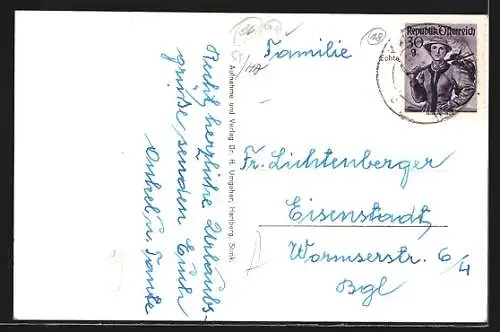 Recht herzliche Urlaubs-
grüße, senden Euch
Onkel u. Tante
Aufnahme und Verlag Dr. H. Umgeher, Hartberg, Stmk.
Echte
Republik Österreich
30
g
Familie
Fr. Lichtenberger
Eisenstadt,
Wormserstr. 6/4
Bgl